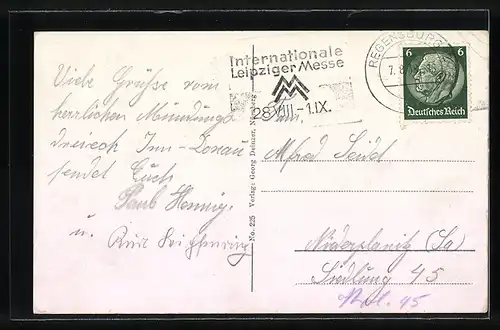 Internationale
Leipziger Messe
MM
28.VIII.-1.IX.
REGENSBURG
7.8
6 6
Deutsches Reich
Viele Grüße vom
herrlichen Mündungs
dreieck Inn-Donau
sendet Euch
Paul Hennig
u. Kurt
Verlag: Georg Deinzer, Nürnberg
No. 225
Alfred Seidel
Niederplanitz (Sa
Siedlung 45
45